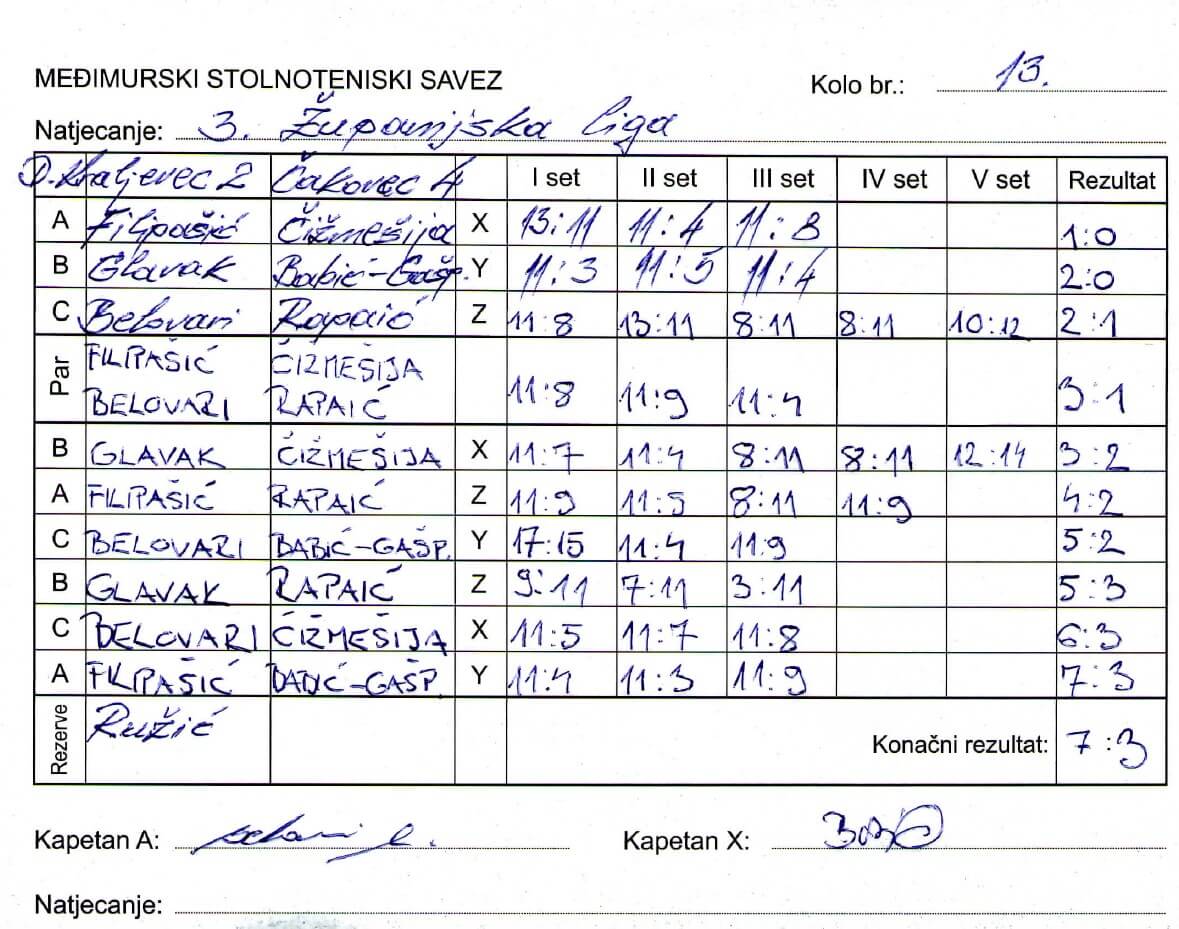 MEĐIMURSKI STOLNOTENISKI SAVEZ
Kolo br.: 13.
Natjecanje: 3. Županijska liga
D. Kraljevec 2 Čakovec 4 I set II set III set IV set V set Rezultat
A Filipašić Čižmešija X 13:11 11:4 11:8 1:0
B Glavak Babić-Gašp. Y 11:3 11:5 11:4 2:0
C Belovari Rapaić Z 11:8 13:11 8:11 8:11 10:12 2:1
Par FILIPAŠIĆ ČIŽMEŠIJA
BELOVARI RAPAIĆ 11:8 11:9 11:4 3:1
B GLAVAK ČIŽMEŠIJA X 11:7 11:4 8:11 8:11 12:14 3:2
A FILIPAŠIĆ RAPAIĆ Z 11:9 11:5 8:11 11:9 4:2
C BELOVARI BABIĆ-GAŠP. Y 17:15 11:4 11:9 5:2
B GLAVAK RAPAIĆ Z 9:11 7:11 3:11 5:3
C BELOVARI ČIŽMEŠIJA X 11:5 11:7 11:8 6:3
A FILIPAŠIĆ BABIĆ-GAŠP Y 11:4 11:3 11:9 7:3
Rezerve Ružić Konačni rezultat: 7:3
Kapetan A: Kapetan X:
Natjecanje: